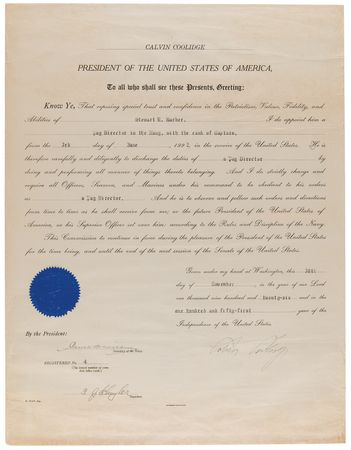 CALVIN COOLIDGE
PRESIDENT OF THE UNITED STATES OF AMERICA,
To all who shall see these Presents, Greeting:
Know Ye, That reposing special trust and confidence in the Patriotism, Valour, Fidelity, and
Abilities of Stewart E. Barber, I do appoint him a
Pay Director in the Navy, with the rank of Captain,
from the day of June, in the service of the United States. He is
therefore carefully and diligently to discharge the duties of a Pay Director by
doing and performing all manner of things thereto belonging. And I do strictly charge and
require all Officers, Seamen, and Marines under his command to be obedient to his orders
as a Pay Director. And he is to observe and follow such orders and directions
from time to time as he shall receive from me, or the future President of the United States
of America, or his Superior Officer set over him, according to the Rules and Discipline of the Navy.
This Commission to continue in force during the pleasure of the President of the United States
for the time being, and until the end of the next session of the Senate of the United States.
Given under my hand at Washington, this
day of in the year of our Lord
one thousand nine hundred and twenty-six and in the
one hundred and fifty-first year of the
Independence of the United States.
By the President:
Calvin Coolidge
Secretary of the Navy.
REGISTERED NO. 4